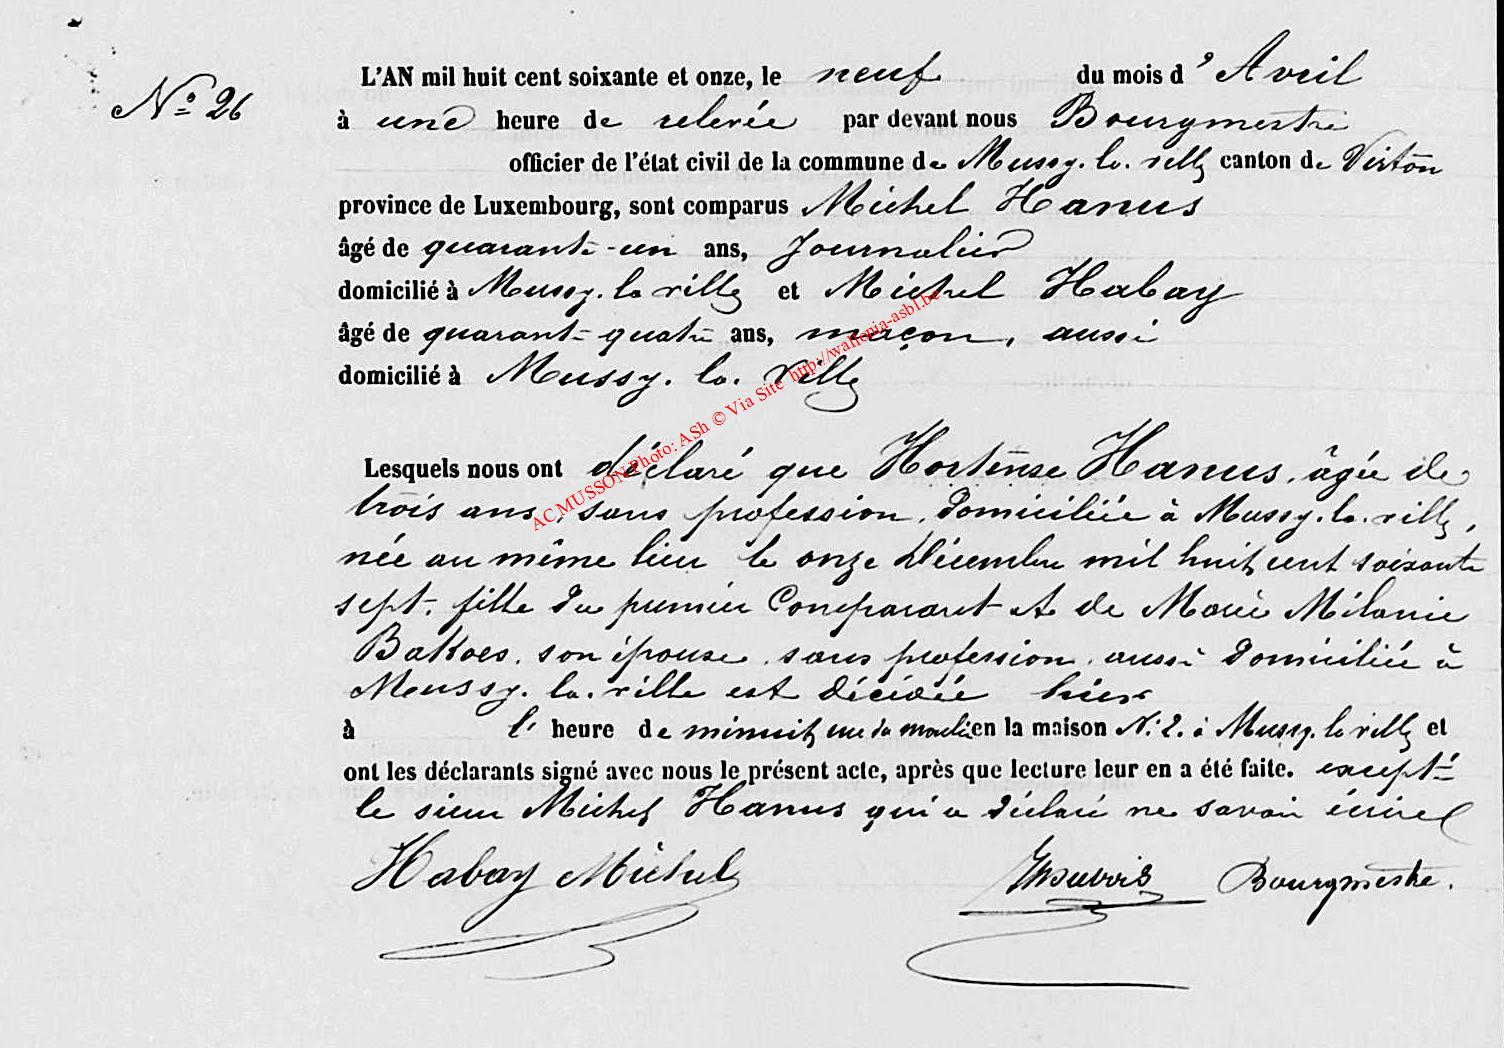 N.º 26
L'AN mil huit cent soixante et onze, le neuf du mois d' Avril
à une heure de relevée par devant nous Bourgmestre
officier de l'état civil de la commune de Mussy-la-ville canton de Virton
province de Luxembourg, sont comparus Michel Hanus
âgé de quarante-un ans, Journalier
domicilié à Mussy-la ville et Michel Habay
âgé de quarante-quatre ans, maçon, aussi
domicilié à Mussy-la-Ville
Lesquels nous ont déclaré que Hortense Hanus, âgée de
trois ans, sans profession, Domiciliée à Mussy-la-ville,
née au même lieu le onze Décembre mil huit cent soixante
sept, fille du premier Comparant et de Marie Mélanie
Bakoes, son épouse, sans profession, aussi Domiciliée à
Mussy-la-ville est décédée hier
à l' heure de minuit rue du moulin en la maison N.º 2. à Mussy-la ville et
ont les déclarants signé avec nous le présent acte, après que lecture leur en a été faite. excepté
le sieur Michel Hanus qui a déclaré ne savoir écrire
Habay Michel
Bourgmestre.
ACMUSSON Photo: ASh © Via Site http://wallonia-asbl.be